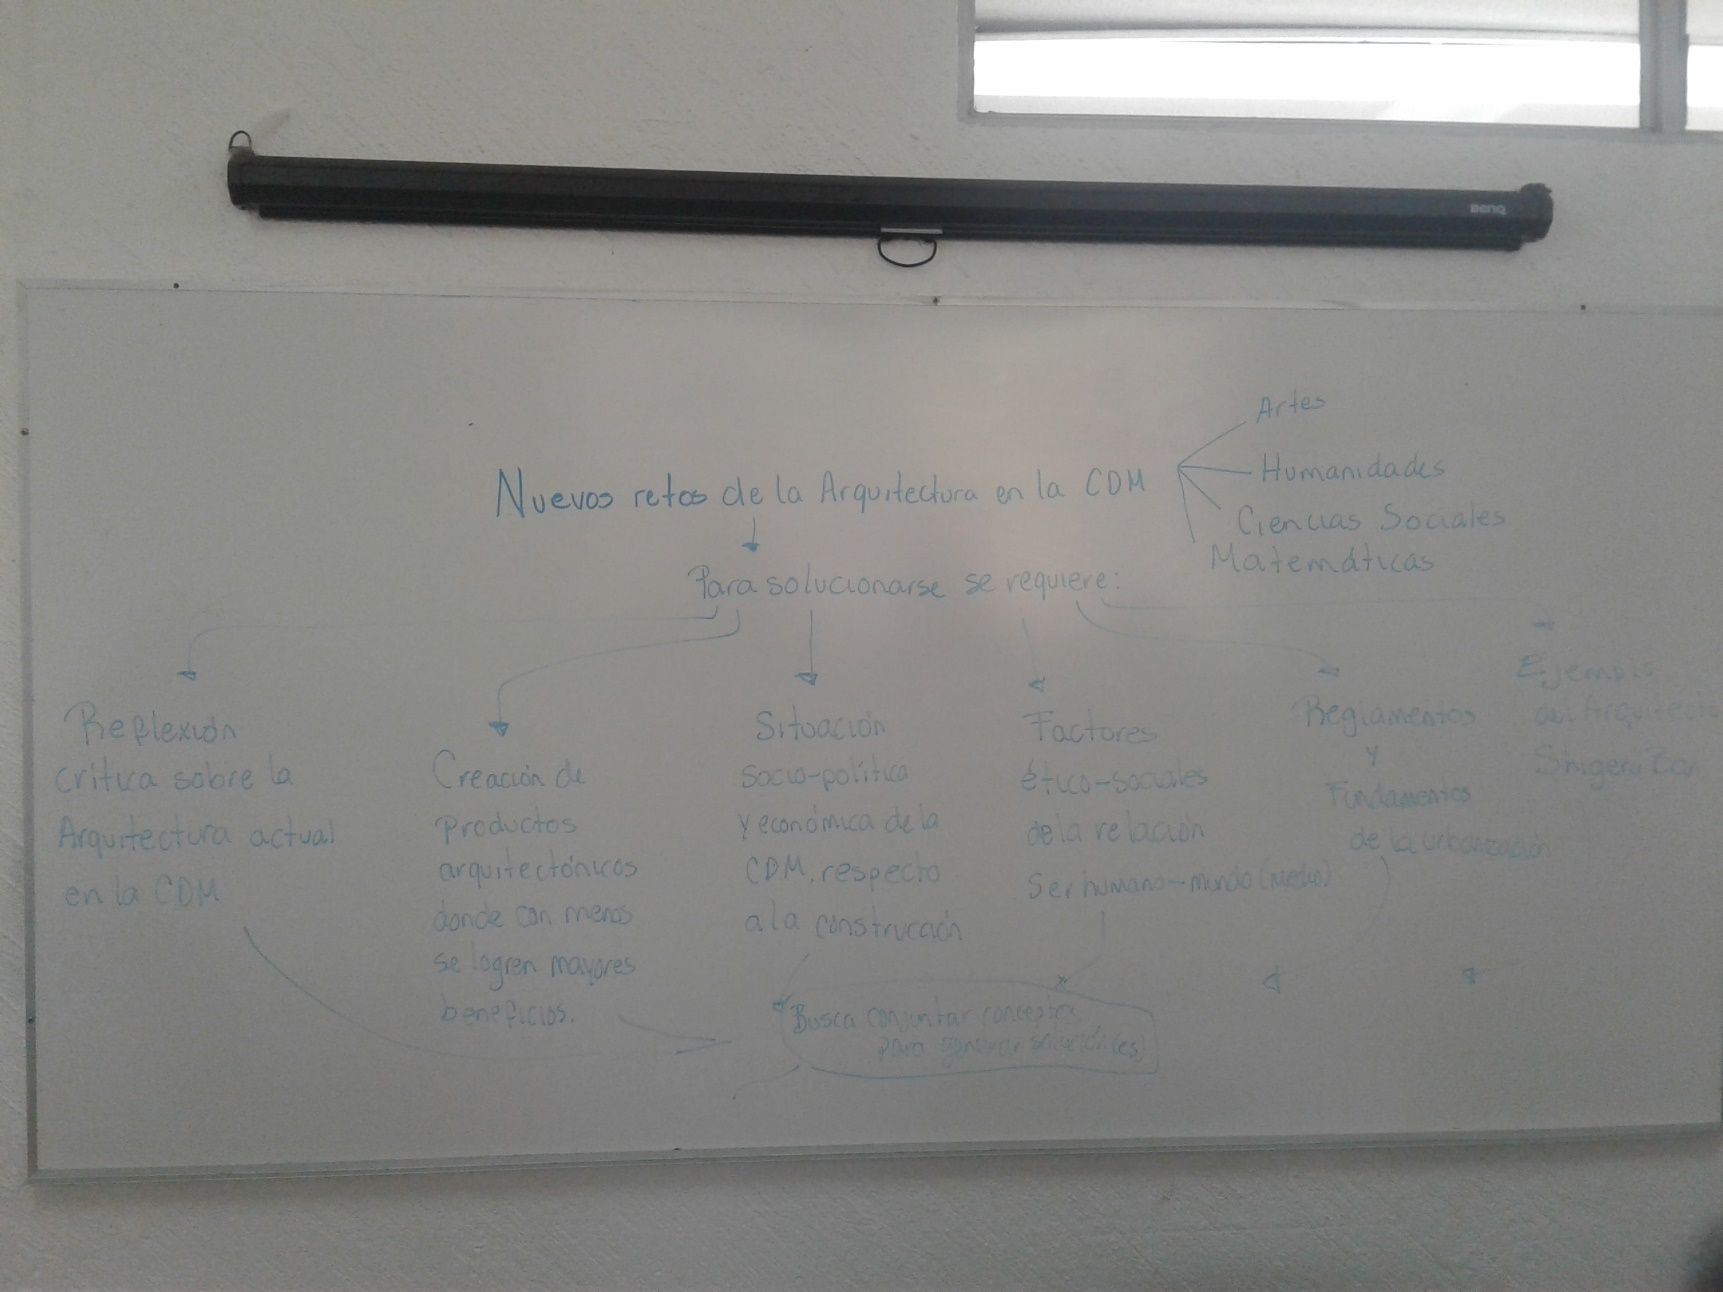 BenQ
Nuevos retos de la Arquitectura en la CDM
Artes
Humanidades
Ciencias Sociales
Matemáticas
Para solucionarse se requiere:
Reflexión
crítica sobre la
Arquitectura actual
en la CDM
Creación de
productos
arquitectónicos
donde con menos
se logren mayores
beneficios.
Situación
socio-política
y económica de la
CDM, respecto
a la construcción
Factores
ético-sociales
de la relación
Ser humano-mundo (Medio)
Reglamentos
y
Fundamentos
de la urbanización
Ejemplo
del Arquitecto
Shigeru Ban
Busca conjuntar conceptos
para generar